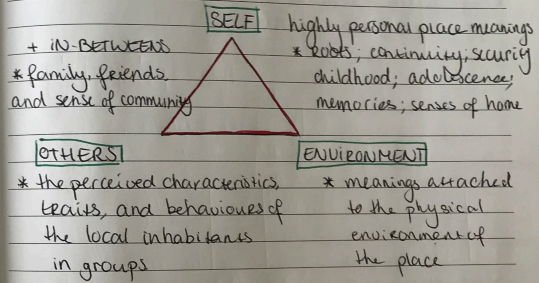 SELF
highly personal place meanings
* roots; continuity; security
childhood; adolescence;
memories; senses of home
+ iN-BETWEENS
* family, friends,
and sense of community
OTHERS
* the perceived characteristics,
traits, and behaviours of
the local inhabitants
in groups
ENVIRONMENT
* meanings attached
to the physical
environment of
the place